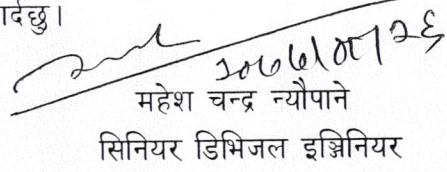 गर्दछु।
२०७७/०९/२६
महेश चन्द्र न्यौपाने
सिनियर डिभिजल इञ्जिनियर